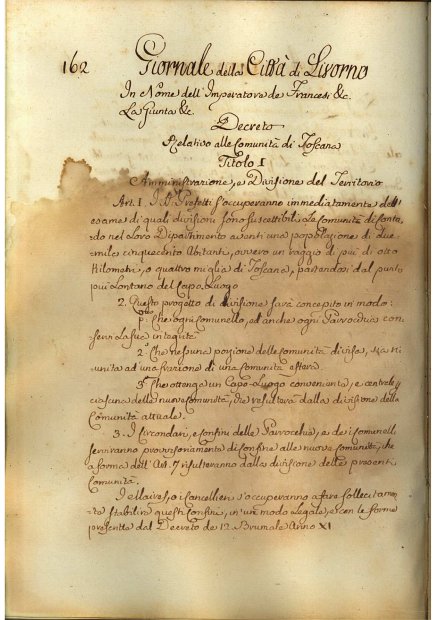 162 Giornale della Città di Livorno
In Nome dell'Imperatore de Francesi &c.
La Giunta &c.
Decreto
Relativo alle Comunità di Toscana
Titolo I
Amministrazione, e Divisione del Territorio
Art. 1. I SS. Prefetti s'occuperanno immediatamente dell'
esame di quali divisioni sono suscettibili le Comunità di Conta-
do nel loro Dipartimento aventi una popolazione di due-
mila cinquecento Abitanti, ovvero un raggio di più di otto
Kilometri, o quattro miglia di Toscana, partendosi dal punto
più lontano del Capo-Luogo
2. Questo progetto di divisione sarà concepito in modo:
1º: Che ogni Comunello, ed anche ogni Parrocchia con-
servi la sua integrità
2º. Che nessuna porzione delle Comunità divisa, sia ri-
unita ad una frazione di una Comunità estera
3º. Che ottenga un Capo-Luogo conveniente, e centrale
ciascuna delle nuove Comunità, che resulterà dalla divisione della
Comunità attuale.
3. I Circondari, e confini delle Parrocchie, e dei Comunelli
serviranno provvisoriamente di confine alle nuove Comunità, che
a forma dell'Art. 7 risulteranno dalla divisione delle presenti
Comunità.
I Maires, o i Cancellieri s'occuperanno a fare sollecitamen-
te stabilire questi confini, in un modo Legale, e con le forme
prescritte dal Decreto de 12 Brumale Anno XI